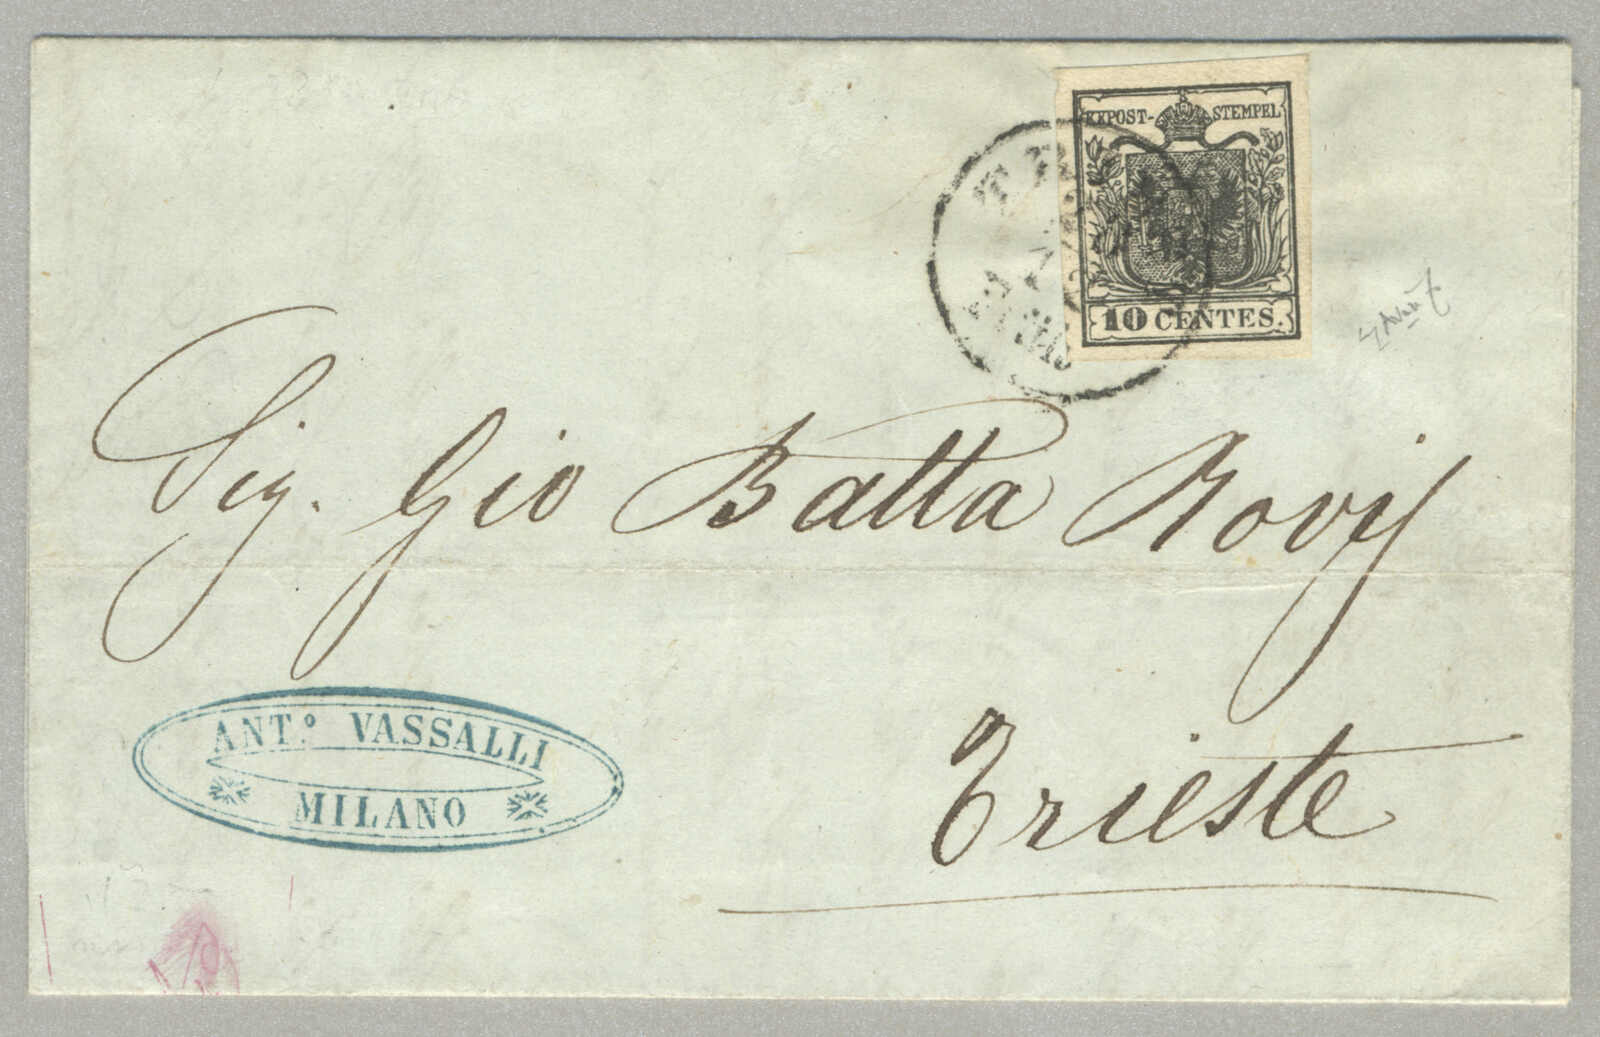 KKPOST- STEMPEL
10 CENTES.
Sig. Gio Batta Rovis
Trieste
ANT.º VASSALLI
MILANO